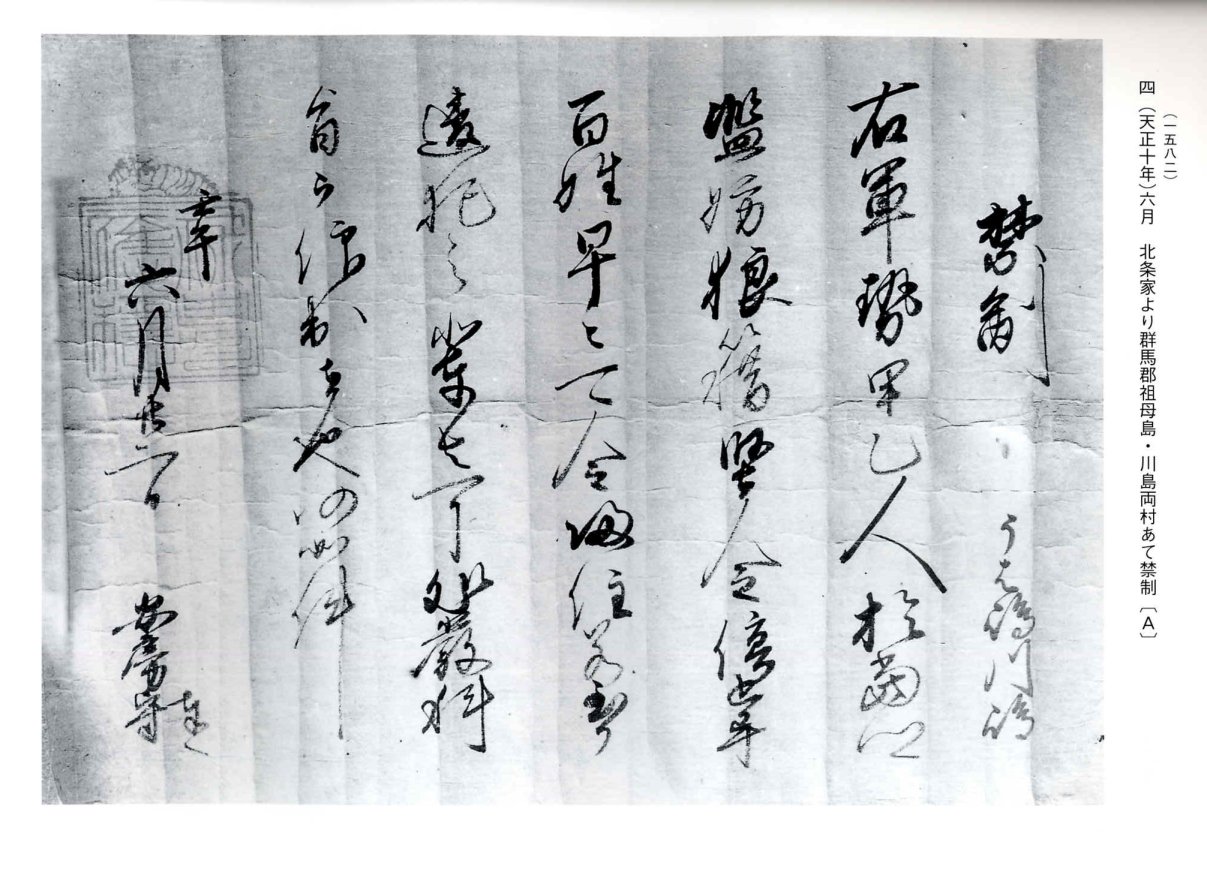 (一五八二)
四 (天正十年)六月 北条家より群馬郡祖母島・川島両村あて禁制 〔A〕
禁制 うは嶋川嶋
右軍勢甲乙人於当郷
濫妨狼藉堅令停止畢
百姓早々可令帰住若至于
違犯之輩者可処厳科
旨被仰出者也仍如件
壬午
六月廿二日
安房守
奉之